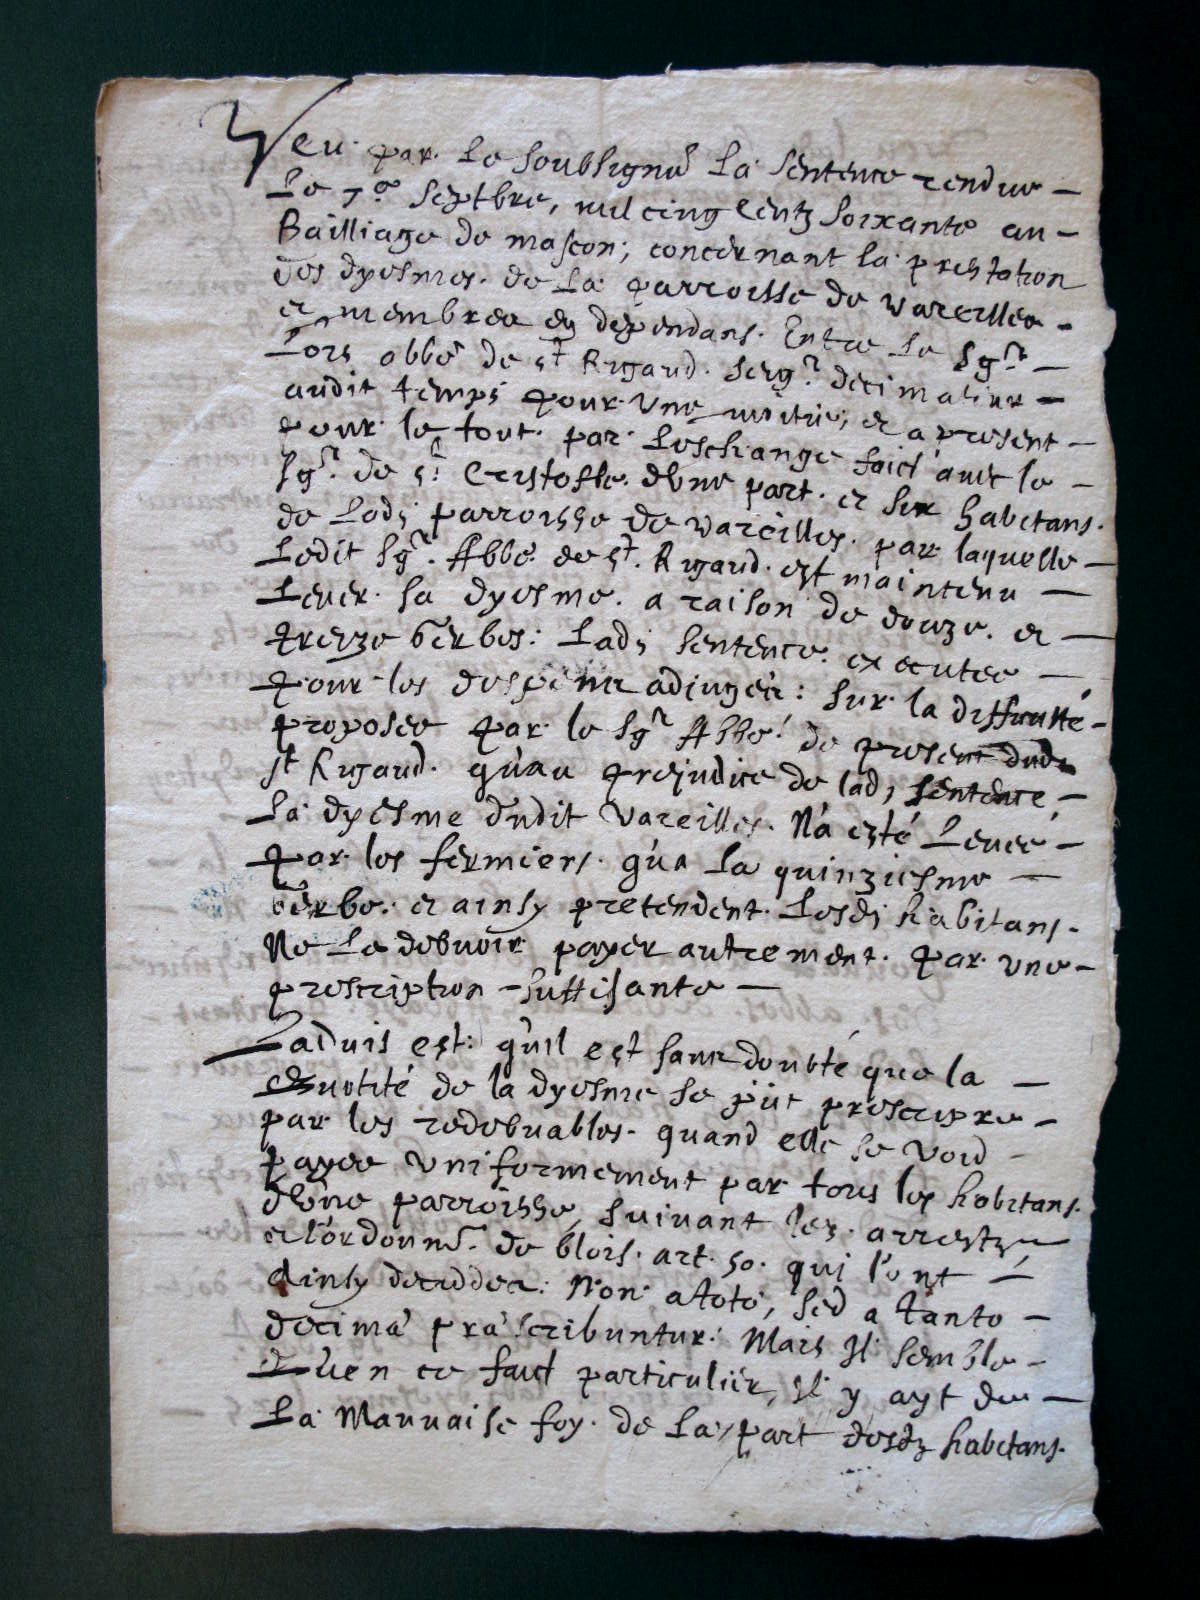 Veu par Le Soubsigné La Sentence rendue
Le 7e Septbre, mil cinq Centz Soixante au
Bailliage de mascon; concernant la prestation
des dyesmes de La parroisse de Vareilles
et membres en dépendans. Entre Le Sgr
Lors abbé de st Rigaud. Seigr decimateur
audit temps pour Une moitié; et a present
pour le tout par Leschange faict avec le
Sgr de st Cristofle d'une part. et les habitans
de Lade parroisse de Vareilles. par laquelle
Ledit Sgr Abbé de st. Rigaud est maintenu
Lever sa dyesme. a raison de douze. et
treize Gerbes: Lade Sentence executee
pour les despens adiugés: Sur la difficulté
proposée par le Sgr Abbé de present dudt
st Rigaud. qu'au prejudice de lade Sentence
La dyesme dudit Vareilles. N'a esté Levée
par les fermiers qu'a La quinziesme
Gerbe. et ainsy pretendent Lesdt habitans
Ne La debuoir payer autrement. par une
prescription Suffisante
Laduis est: qu'il est sans doubté que la
Quotité de la dyesme se put prescripre
par les redebuables. quand elle se void
payee Uniformement par tous les habitans
d'une parroisse, suivant les arrestz
et l'ordonnce. de blois. art. 50. qui l'ont
ainsy decidder: Non atoto, sed a tanto
decimæ præscribuntur: Mais Il Semble
Qu'en ce faict particulier, Il y ayt de
La Mauvaise foy. de La part desdz habitans.